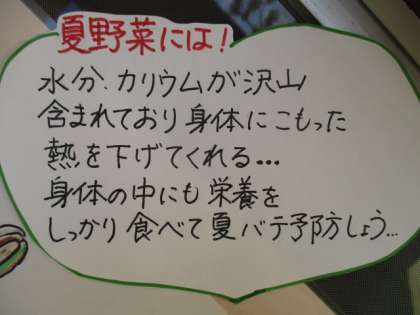 夏野菜には!
水分、カリウムが沢山
含まれており身体にこもった
熱を下げてくれる...
身体の中にも栄養を
しっかり食べて夏バテ予防しょう...